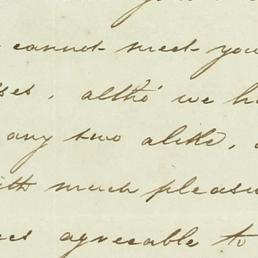 cannot meet you
altho' we h
any two alike,
with much pleasu
agreeable to